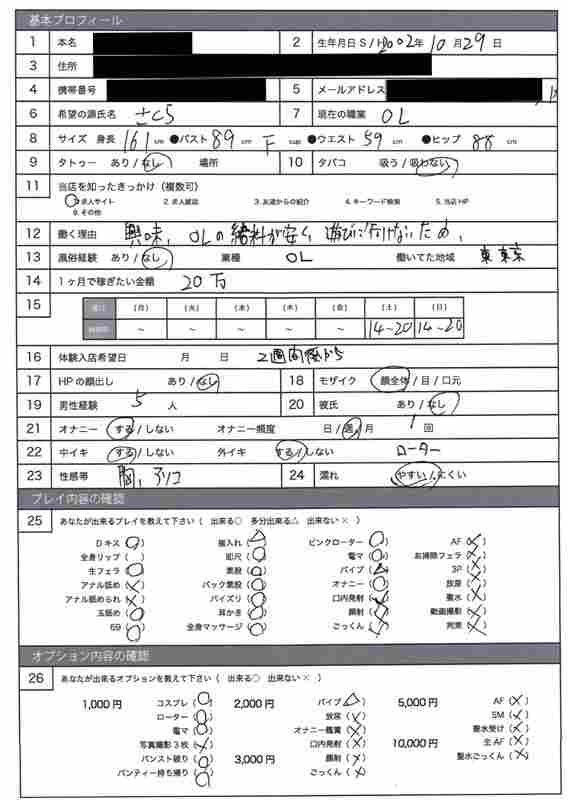 基本プロフィール
1 本名 2 生年月日 S / H 2002年 10月 29日
3 住所
4 携帯番号 5 メールアドレス
6 希望の源氏名 7 現在の職業 OL
8 サイズ 身長 161 cm ●バスト 89 cm F cup ●ウエスト 59 cm ●ヒップ 88 cm
9 タトゥー あり / なし 場所 10 タバコ 吸う / 吸わない
11 当店を知ったきっかけ（複数可）
1.求人サイト 2.求人雑誌 3.友達からの紹介 4.キーワード検索 5.当店HP
6.その他
12 働く理由 興味、OLの給料が安く、遊びに行けないため、
13 風俗経験 あり / なし 業種 OL 働いてた地域 東京
14 1ヶ月で稼ぎたい金額 20万
15 (月) (火) (水) (木) (金) (土) (日)
～ ～ ～ ～ ～ 14～20 14～20
16 体験入店希望日 月 日 2週間後から
17 HPの顔出し あり / なし 18 モザイク 顔全体 / 目 / 口元
19 男性経験 5 人 20 彼氏 あり / なし
21 オナニー する / しない オナニー頻度 日 / 週 / 月 1 回
22 中イキ する / しない 外イキ する / しない ローター
23 性感帯 胸、クリ 24 濡れ やすい / にくい
プレイ内容の確認
25 あなたが出来るプレイを教えて下さい（ 出来る○ 多分出来る△ 出来ない× ）
Dキス (○) 指入れ (△) ピンクローター (○) AF (×)
全身リップ ( ) 即尺 (○) 電マ (○) お掃除フェラ (×)
生フェラ (○) 素股 (○) バイブ (△) 3P (×)
アナル舐め (×) バック素股 (○) オナニー (○) 放尿 (×)
アナル舐められ (×) パイズリ (○) 口内発射 (×) 聖水 (×)
玉舐め (○) 耳かき (○) 顔射 (×) 動画撮影 (×)
69 (○) 全身マッサージ (○) ごっくん (×) 拘束 (×)
オプション内容の確認
26 あなたが出来るオプションを教えて下さい（ 出来る○ 出来ない× ）
1,000円 コスプレ (○) 2,000円 バイブ (△) 5,000円 AF (×)
ローター (○) 放尿 (×) SM (×)
電マ (○) オナニー鑑賞 (×) 聖水受け (×)
写真撮影3枚 (×) 口内発射 (×) 10,000円 生AF (×)
パンスト破り (○) 3,000円 顔射 (×) 聖水ごっくん (×)
パンティー持ち帰り (○) ごっくん (×)